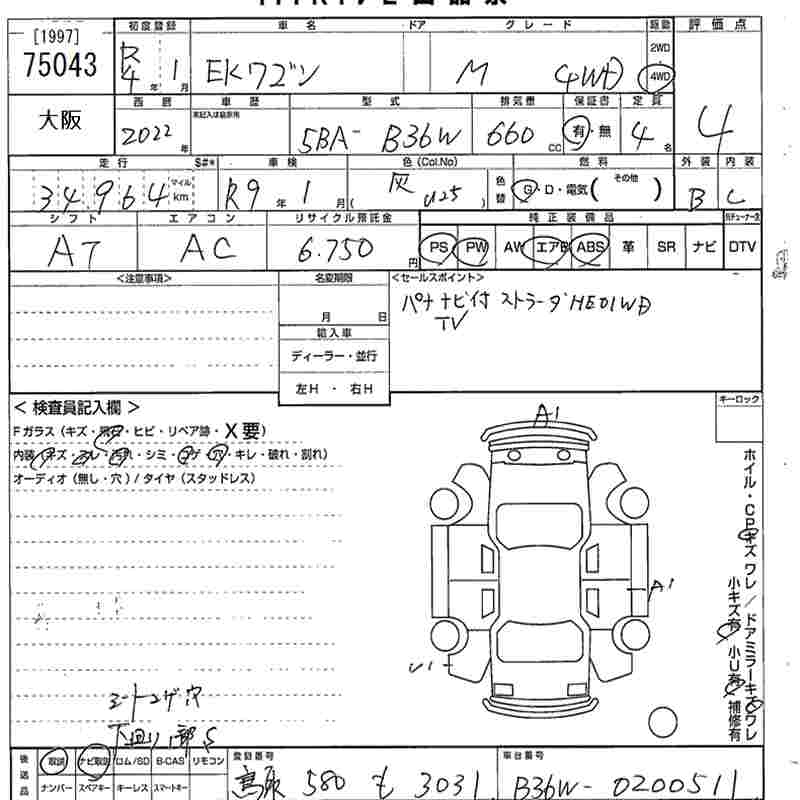 [1997]
75043
初度登録 車名 ドア グレード 駆動 評価点
R4年 1月 EKワゴン M 4WD 2WD 4WD
大阪
西暦 車歴 型式 排気量 保証書 定員
2022年 未記入は自家用 5BA- B36W 660cc 有・無 4名 4
走行 S#* 車検 色(Col.No) 燃料 外装 内装
34964 マイル km R9年 1月 灰 (U25) 色替 G・D・電気( その他 ) B C
シフト エアコン リサイクル預託金 純正装備品
AT AC 6.750円 PS PW AW エアB ABS 革 SR ナビ DTV
<注意事項> 名変期限 <セールスポイント>
月 日 パナナビ付 ストラーダHE01WD
TV
輸入車
ディーラー・並行
左H ・ 右H
< 検査員記入欄 > キーロック
Fガラス (キズ・飛石・ヒビ・リペア跡・X要)
内装 (キズ・スレ・汚れ・シミ・コゲ・穴・キレ・破れ・割れ)
オーディオ (無し・穴) / タイヤ (スタッドレス)
A1
A1
U1
ホイル・CPキズ ワレ / ドアミラーキズワレ
小キズ有 小U有 補修有
シートコゲ穴
下廻り一部S
後送品 取説 ナビ取説 ロム/SD B-CAS リモコン 登録番号 車台番号
ナンバー スペアキー キーレス スマートキー 580 も 3031 B36W-0200511